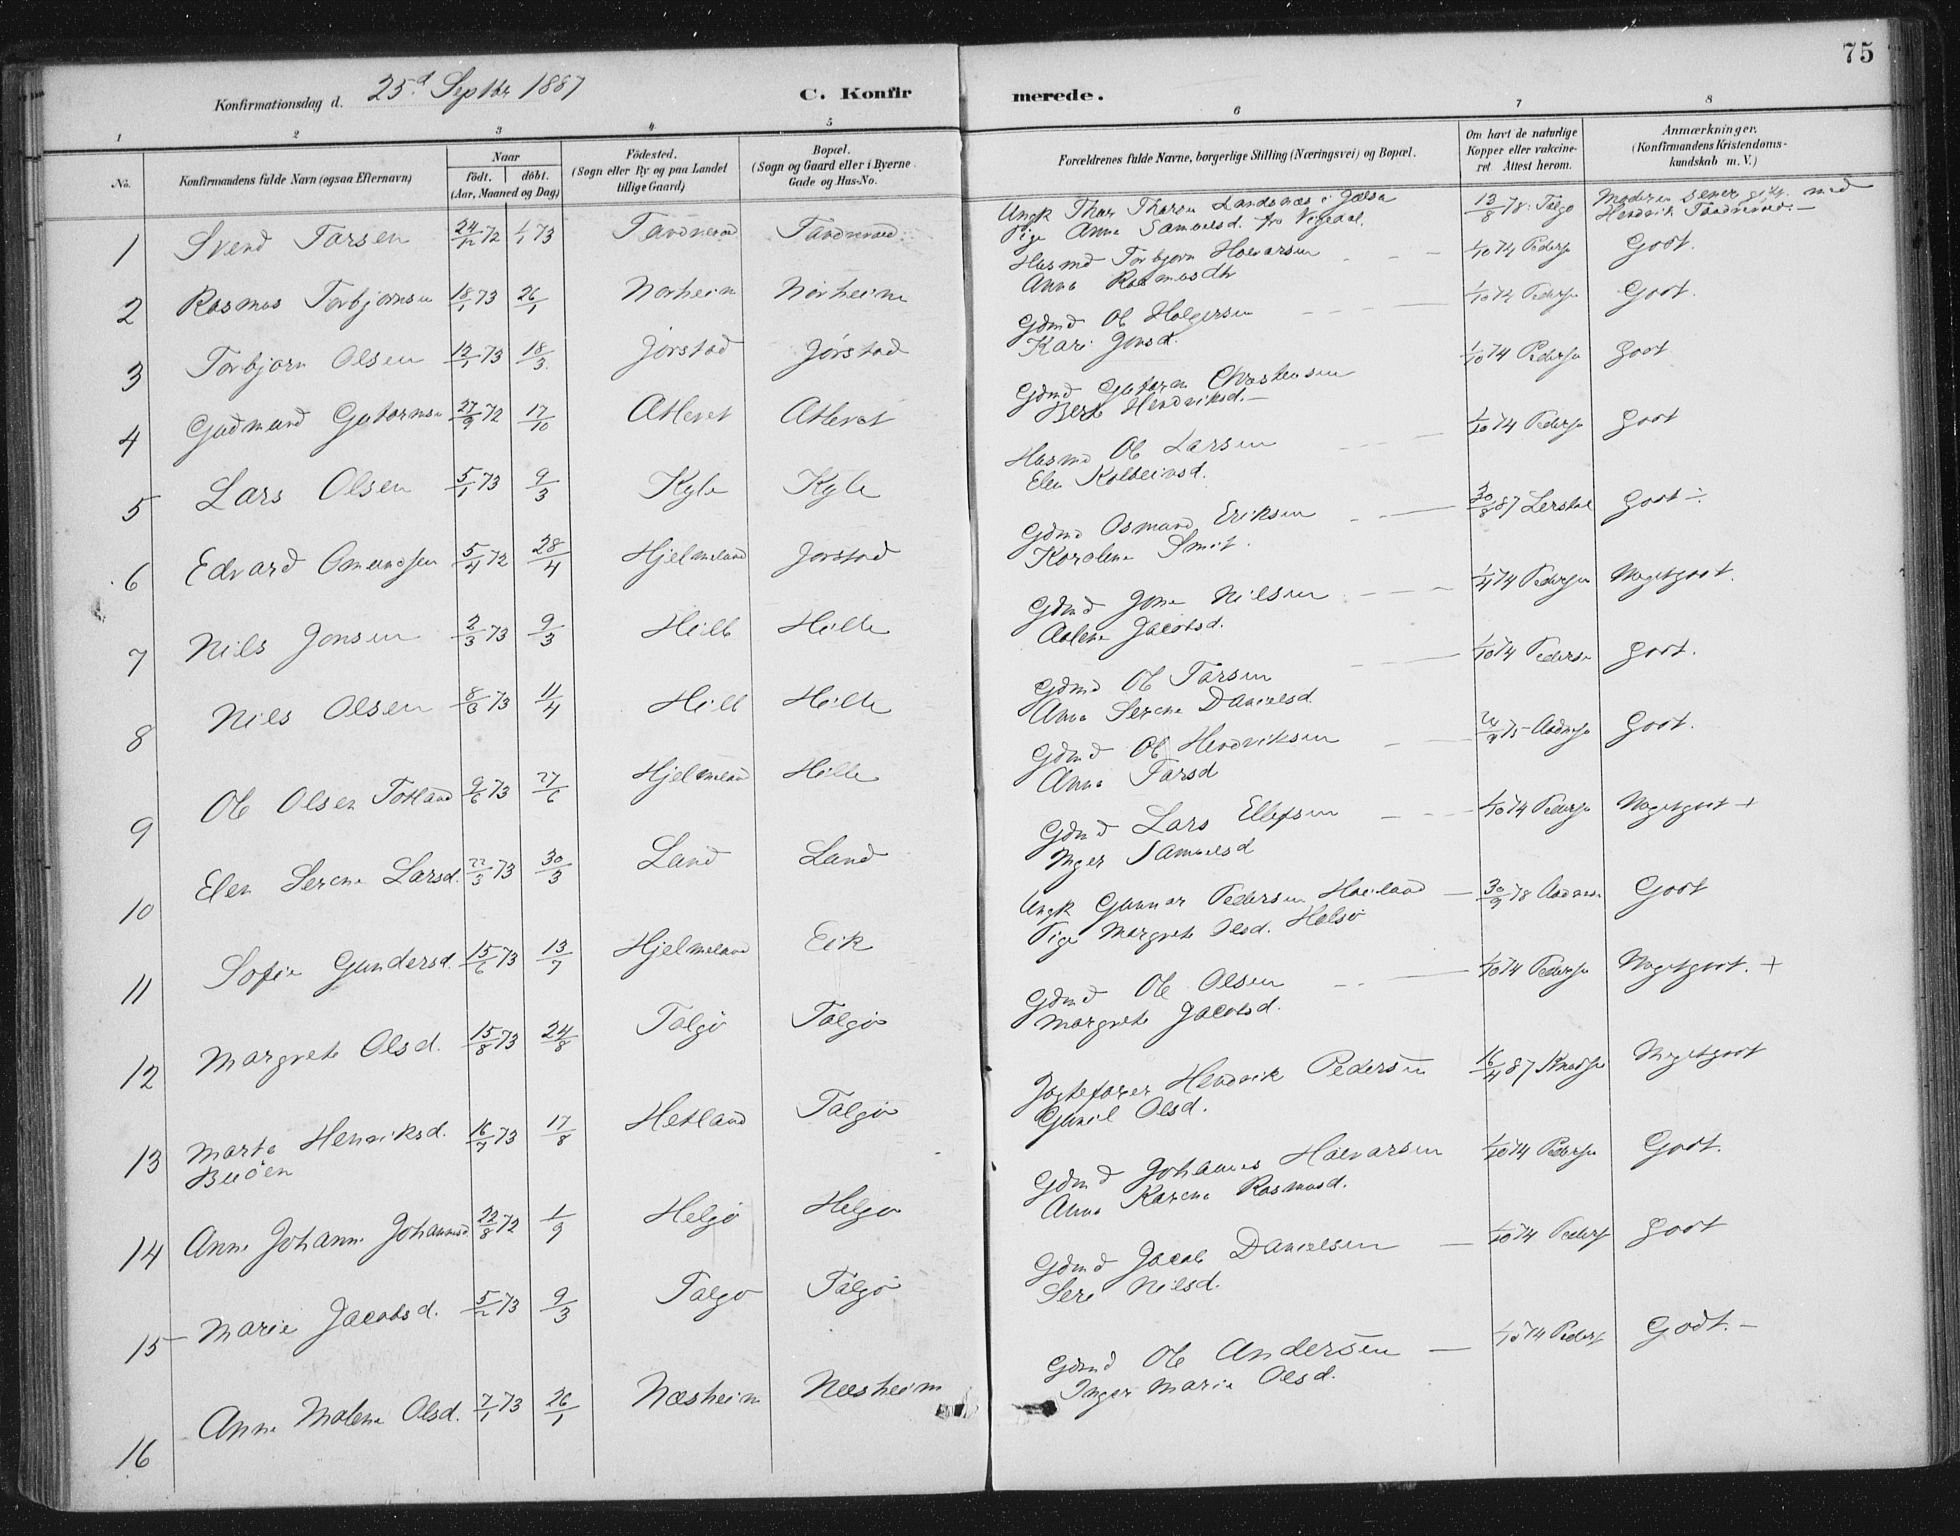 75
Konfirmationsdag d. 25d Septbr 1887
C. Konfir merede.
1 2 3 4 5 6 7 8
No.
Konfirmandens fulde Navn (ogsaa Efternavn)
Naar
födt. döbt.
(Aar, Maaned og Dag)
Födested.
(Sogn eller By og paa Landet
tillige Gaard)
Bopæl.
(Sogn og Gaard eller i Byerne
Gade og Hus-No.
Forældrenes fulde Navne, borgerlige Stilling (Næringsvei) og Bopæl.
Om havt de naturlige
Kopper eller vaccine-
ret. Attest herom.
Anmærkninger.
(Konfirmandens Kristendoms-
kundskab m. V.)
1 Svend Tarsen 24/12 72 1/1 73 Ungk Thor Thorsen Landsnæs i Jælsa 13/8 78 Talgø Moderen senere gift med
Pige Anna Samuelsd. fra Vigedal. Hendrik
2 Rasmus Torbjornsen 18/1 73 26/1 Norheim Norheim Husmd Torbjorn Halvarsen 1/10 74 Pedersen Godt.
Anna Rasmusdtr
3 Torbjorn Olsen 12/1 73 18/3 Jørstad Jørstad Gdmd Ole Holgersen 1/10 74 Pedersen Godt.
Kari Jonsd.
4 Gudmund Gutormsen 27/9 72 17/10 Atleret Atleret Gdmd Gutorm Christensen 1/10 74 Pedersen Godt
Berte Hendriksd.
5 Lars Olsen 5/1 73 9/3 Kyle Kyle Husmd Ole Larsen 1/10 74 Pedersen Godt
Elen Kolbeinsd.
6 Edvard Osmundsen 5/4 72 28/4 Hjelmeland Jorstad Gdmd Osmund Eriksen 30/8 87 Godt
Karolene Smit.
7 Nils Jonsen 2/3 73 9/3 Hille Hille Gdmd Jone Nilsen 1/4 74 Pedersen Megetgodt.
Aalene Jacobsd.
8 Nils Olsen 8/3 73 11/4 Hille Hille Gdmd Ole Tarsen 1/10 74 Pedersen Godt.
Anna Serene Danielsd.
9 Ole Olsen Totland 9/6 73 27/6 Hjelmeland Hille Gdmd Ole Hendriksen Godt.
Anna Tarsd
10 Elen Serene Larsd. 22/3 73 30/3 Land Land Gdmd Lars Ellefsen 1/10 74 Pedersen Megetgodt +
Inger Samuelsd
11 Sofie Gundersd. 15/6 73 13/7 Hjelmeland Eik Ungk Gunnar Pedersen Høiland 30/9 78 Godt
Pige Margrete Olsd. Halsø
12 Margrete Olsd. 15/8 73 24/8 Talgø Talgø Gdmd Ole Olsen 1/10 74 Pedersen Megetgodt. +
Margrete Jacobsd.
13 Marta Henriksd. 16/7 73 17/8 Hetland Talgø Jagtefører Hendrik Pedersen 16/4 87 Megetgodt
Buøen Gunil Olsd.
14 Anne Johanne Johannesd 22/8 72 1/9 Helgø Helgø Gdmd Johannes Halvarsen 1/10 74 Pedersen Godt.
Anna Karene Rasmusd.
15 Marie Jacobsd. 5/2 73 9/3 Talgø Talgø Gdmd Jacob Danielsen 1/10 74 Pedersen Godt
Seri Nilsd.
16 Anne Malene Olsd. 7/1 73 26/1 Næsheim Næsheim Gdmd Ole Andersen 1/10 74 Pedersen Godt.
Inger Marie Olsd.